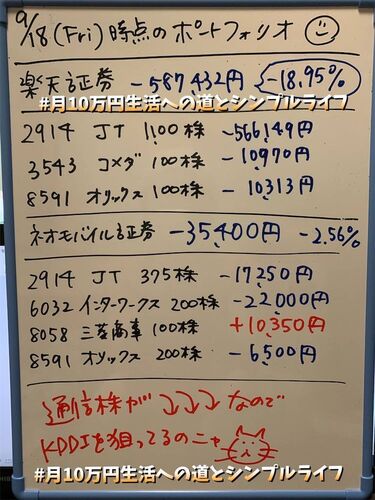 9/18(Fri)時点のポートフォリオ
楽天証券 -587,432円 -18.95%
#月10万円生活への道とシンプルライフ
2914 JT 1,100株 -566,149円
3543 コメダ 100株 -10,970円
8591 オリックス 100株 -10,313円
ネオモバイル証券 -35,400円 -2.56%
2914 JT 375株 -17,250円
6032 インターワークス 200株 -22,000円
8058 三菱商事 100株 +10,350円
8591 オリックス 200株 -6,500円
通信株が↓↓↓なので
KDDIを狙ってるのニャ
#月10万円生活への道とシンプルライフ